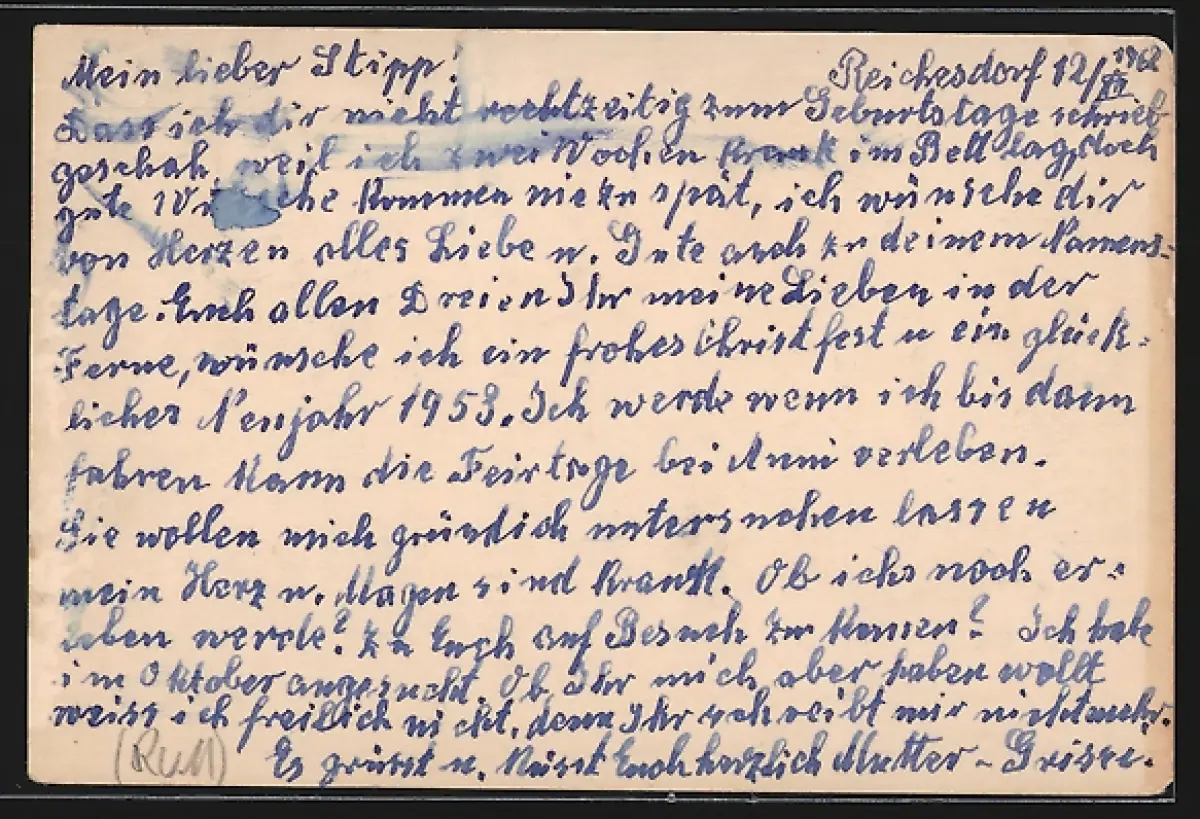 Mein lieber Stipp! Reichesdorf 12/XII 1962
Dass ich dir nicht rechtzeitig zum Geburtstage schrieb
geschah, weil ich zwei Wochen krank im Bett lag, doch
gute Wü che kommen nie zu spät, ich wünsche dir
von Herzen alles Liebe u. Gute auch zu deinem Namens-
tage. Euch allen Dreien Ihr meine Lieben in der
Ferne, wünsche ich ein frohes Christfest u ein glück-
liches Neujahr 1953. Ich werde wenn ich bis dann
fahren kann die Feirtage bei Anni verleben.
Sie wollen mich gründlich untersuchen lassen
mein Herz u. Magen sind krank. Ob ichs noch er-
leben werde? Zu Euch auf Besuch zu komen? Ich habe
im Oktober angesucht. Ob Ihr mich aber haben wollt
weiss ich freilich nicht, denn Ihr schreibt mir nicht mehr.
Es grüsst u. küsst Euch herzlich Mutter -
(RuM)